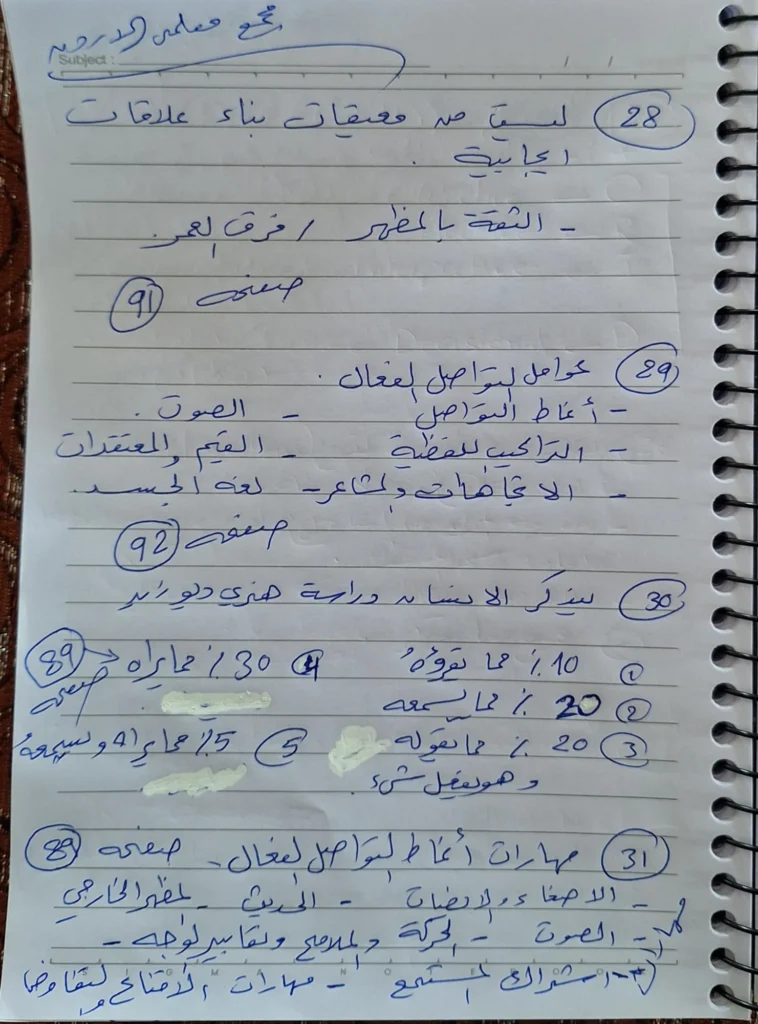 مجمع معلمي الاردن
Subject :
28 ليست من معيقات بناء علاقات
ايجابية .
- الثقة بالمظهر / فرق العمر.
صفحه 91
29 عوامل التواصل الفعال .
- أنماط التواصل - الصوت .
- التراكيب اللفظية - القيم والمعتقدات
- الاتجاهات والمشاعر - لغة الجسد.
صفحه 92
30 يتذكر الانسان دراسة هنري ديوراند
① 10٪ مما يقرؤهُ ④ 30٪ مما يراه → 89 صفحه
② 20٪ مما يسمعه
③ 20٪ مما يقوله ⑤ 5٪ مما يراه ويسمعهُ
وهو يفعل شيء.
31 مهارات أنماط التواصل الفعال - صفحه 89
- الاصغاء والانصات - الحديث - المظهر الخارجي
- الصوت - الحركة والملامح وتعابير الوجه -
- اشتراك المستمع - مهارات الاقناع والتفاوض